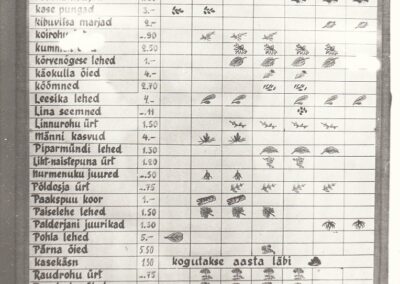 kase pungad 3.-
kibuvitsa marjad 2.-
koirohu -.90
2.50
kõrvenõgese lehed 1.-
käokulla õied 4.-
köömned 2.70
Leesika lehed
Lina seemned -.11
Linnurohu ürt 1.50
Männi kasvud 4.-
Piparmündi lehed 1.30
Liht-naistepuna ürt 1.20
Nurmenuku juured -.50
Põldosja ürt -.75
Paakspuu koor 1.-
Paiselehe lehed 1.50
Palderjani juurikad 1.30
Pohla lehed 5.-
Pärna õied 5.50
kasekäsn 1.50 kogutakse aasta läbi
Raudrohu ürt -.75